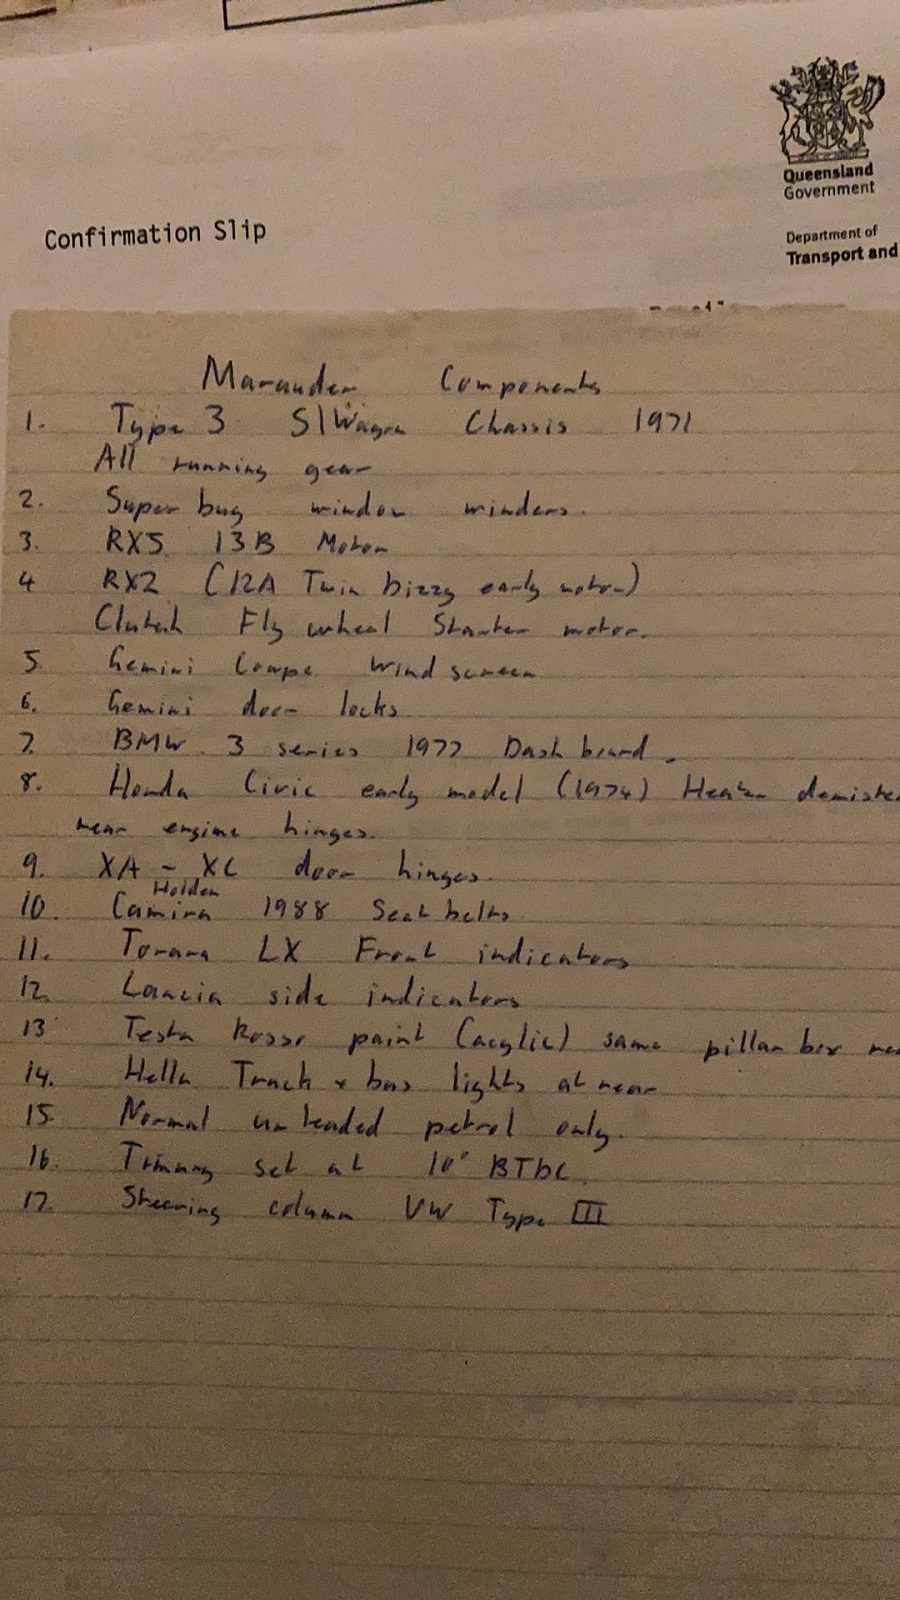 Queensland
Government
Confirmation Slip
Department of
Transport and
Marauder Components
1. Type 3 S/Wagon Chassis 1971
All running gear
2. Super bug window winders.
3. RX5 13B Motor
4 RX2 (12A Twin dizzy early motor)
Clutch Fly wheel Starter motor.
5. Gemini Coupe Wind screen
6. Gemini door locks
7. BMW 3 series 1977 Dash board.
8. Honda Civic early model (1974) Heater demister
rear engine hinges.
9. XA - XC door hinges.
Holden
10. Camira 1988 Seat belts.
11. Torana LX Front indicators
12. Lancia side indicators
13 Testa Rossa paint (acylic) same pillar box red
14. Hella Truck & bus lights at rear
15 Normal unleaded petrol only.
16. Timing set at 10° BTDC.
17. Steering column VW Type III